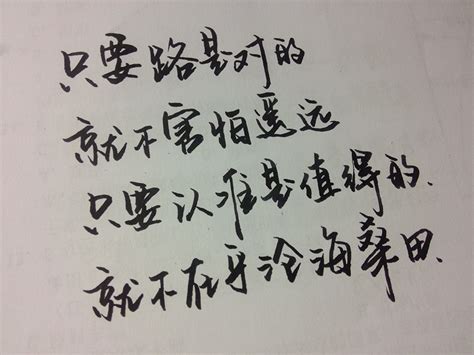 只要路是对的
就不害怕遥远
只要认准是值得的.
就不在乎沧海桑田.